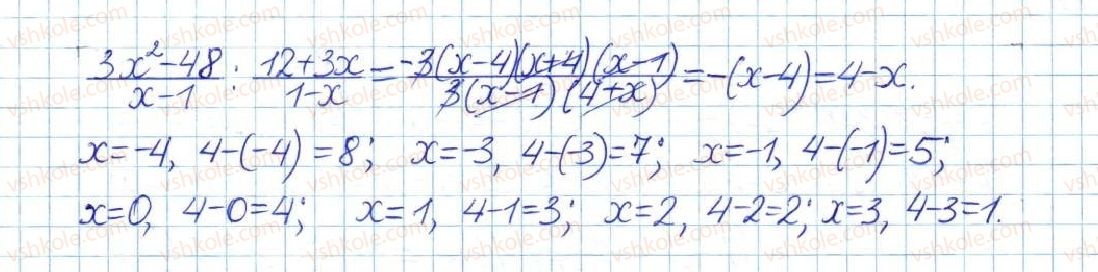 (3x²-48)/(x-1) : (12+3x)/(1-x) = (-3(x-4)(x+4)(x-1))/(3(x-1)(4+x)) = -(x-4) = 4-x.
x=-4, 4-(-4)=8; x=-3, 4-(-3)=7; x=-1, 4-(-1)=5;
x=0, 4-0=4; x=1, 4-1=3; x=2, 4-2=2; x=3, 4-3=1.